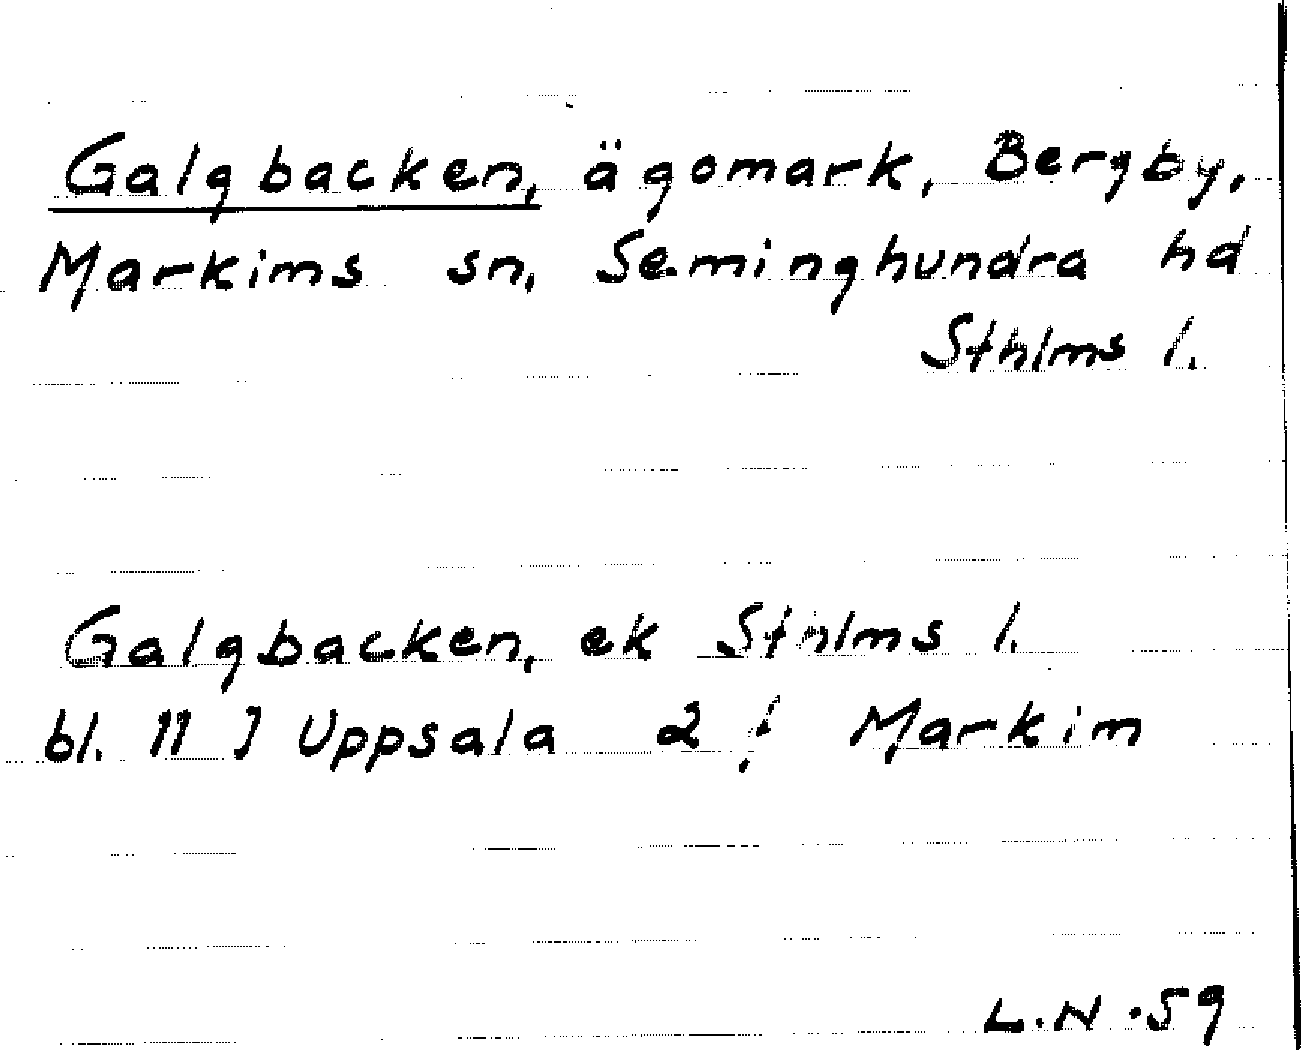 Galgbacken, ägomark, Bergby,
Markims sn, Seminghundra hd
Sthlms l.
Galgbacken, ek Sthlms l.
bl. 11 J Uppsala 2 f Markim
L.N.59